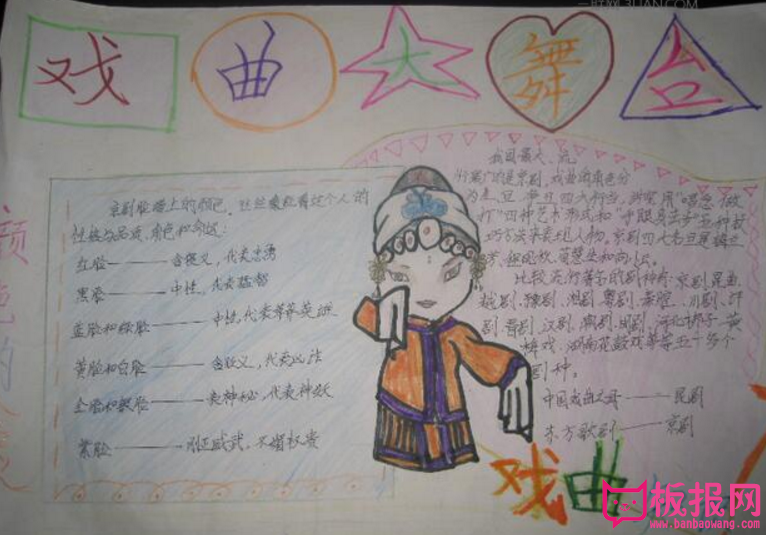 戏曲大舞台
京剧脸谱上的颜色，丝丝奏起着这个人的
性格与品质，角色和命运：
红脸——含褒义，代表忠勇
黑脸——中性，代表猛智
蓝脸和绿脸——中性，代表草莽英雄
黄脸和白脸——含贬义，代表凶诈
金脸和银脸——表神秘，代表神妖
紫脸——刚正威武，不媚权贵
颜色的
我国最大、流
行最广的是京剧，戏曲角色分
为生、旦、净、丑四大种，"唱念做
打"四种艺术形式和"手眼身法步"五种技
巧方法来表现人物。京剧四大名旦
荀慧生和尚小云。
比较流行著名的剧种有：京剧、昆曲、
越剧、豫剧、湘剧、粤剧、秦腔、川剧、评
剧、晋剧、汉剧、潮剧、闽剧、河北梆子、黄
梅戏、湖南花鼓戏等等五十多个
剧种。
中国戏曲之母——昆剧
东方歌剧——京剧
戏曲
板报网
www.banbaowang.com